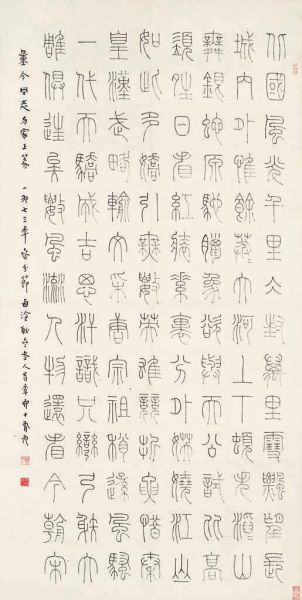 北國風光千里冰封萬里雪飄望長
城內外惟餘莽大河上下頓失滔山
舞銀蛇原馳蠟象欲與天公試比高
須晴日看紅裝素裹分外妖嬈江山
如此多嬌引無數英雄競折腰惜秦
皇漢武略輸文采唐宗祖稍遜風騷
一代天驕成吉思汗識只彎弓射大
雕俱往矣數風流人物還看今朝宋
方家上篆 一九七三年春分節